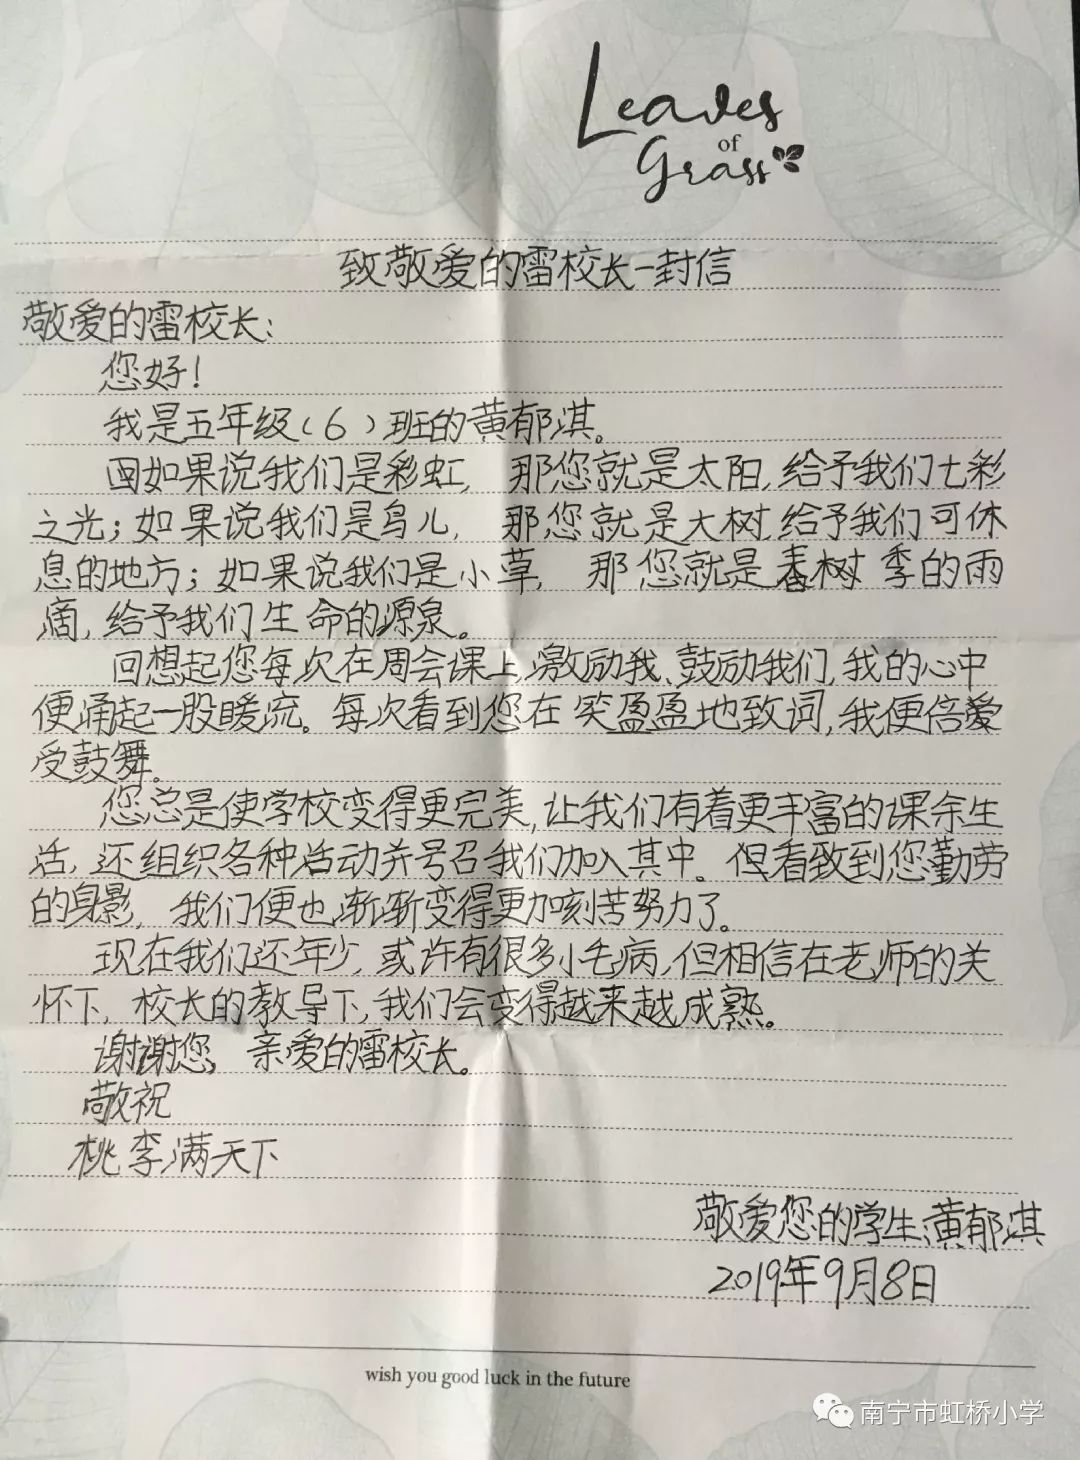 Leaves
of
Grass
致敬爱的雷校长一封信
敬爱的雷校长:
您好!
我是五年级(6)班的黄郁淇。
如果说我们是彩虹,那您就是太阳,给予我们七彩
之光;如果说我们是鸟儿,那您就是大树,给予我们可休
息的地方;如果说我们是小草,那您就是春树季的雨
滴,给予我们生命的源泉。
回想起您每次在周会课上,激励我、鼓励我们,我的心中
便涌起一股暖流。每次看到您在笑盈盈地致词,我便倍爱
受鼓舞。
您总是使学校变得更完美,让我们有着更丰富的课余生
活,还组织各种活动并号召我们加入其中。但看致到您勤劳
的身影,我们便也渐渐变得更加刻苦努力了。
现在我们还年少,或许有很多小毛病,但相信在老师的关
怀下,校长的教导下,我们会变得越来越成熟。
谢谢您,亲爱的雷校长。
敬祝
桃李满天下
敬爱您的学生:黄郁淇
2019年9月8日
wish you good luck in the future
南宁市虹桥小学